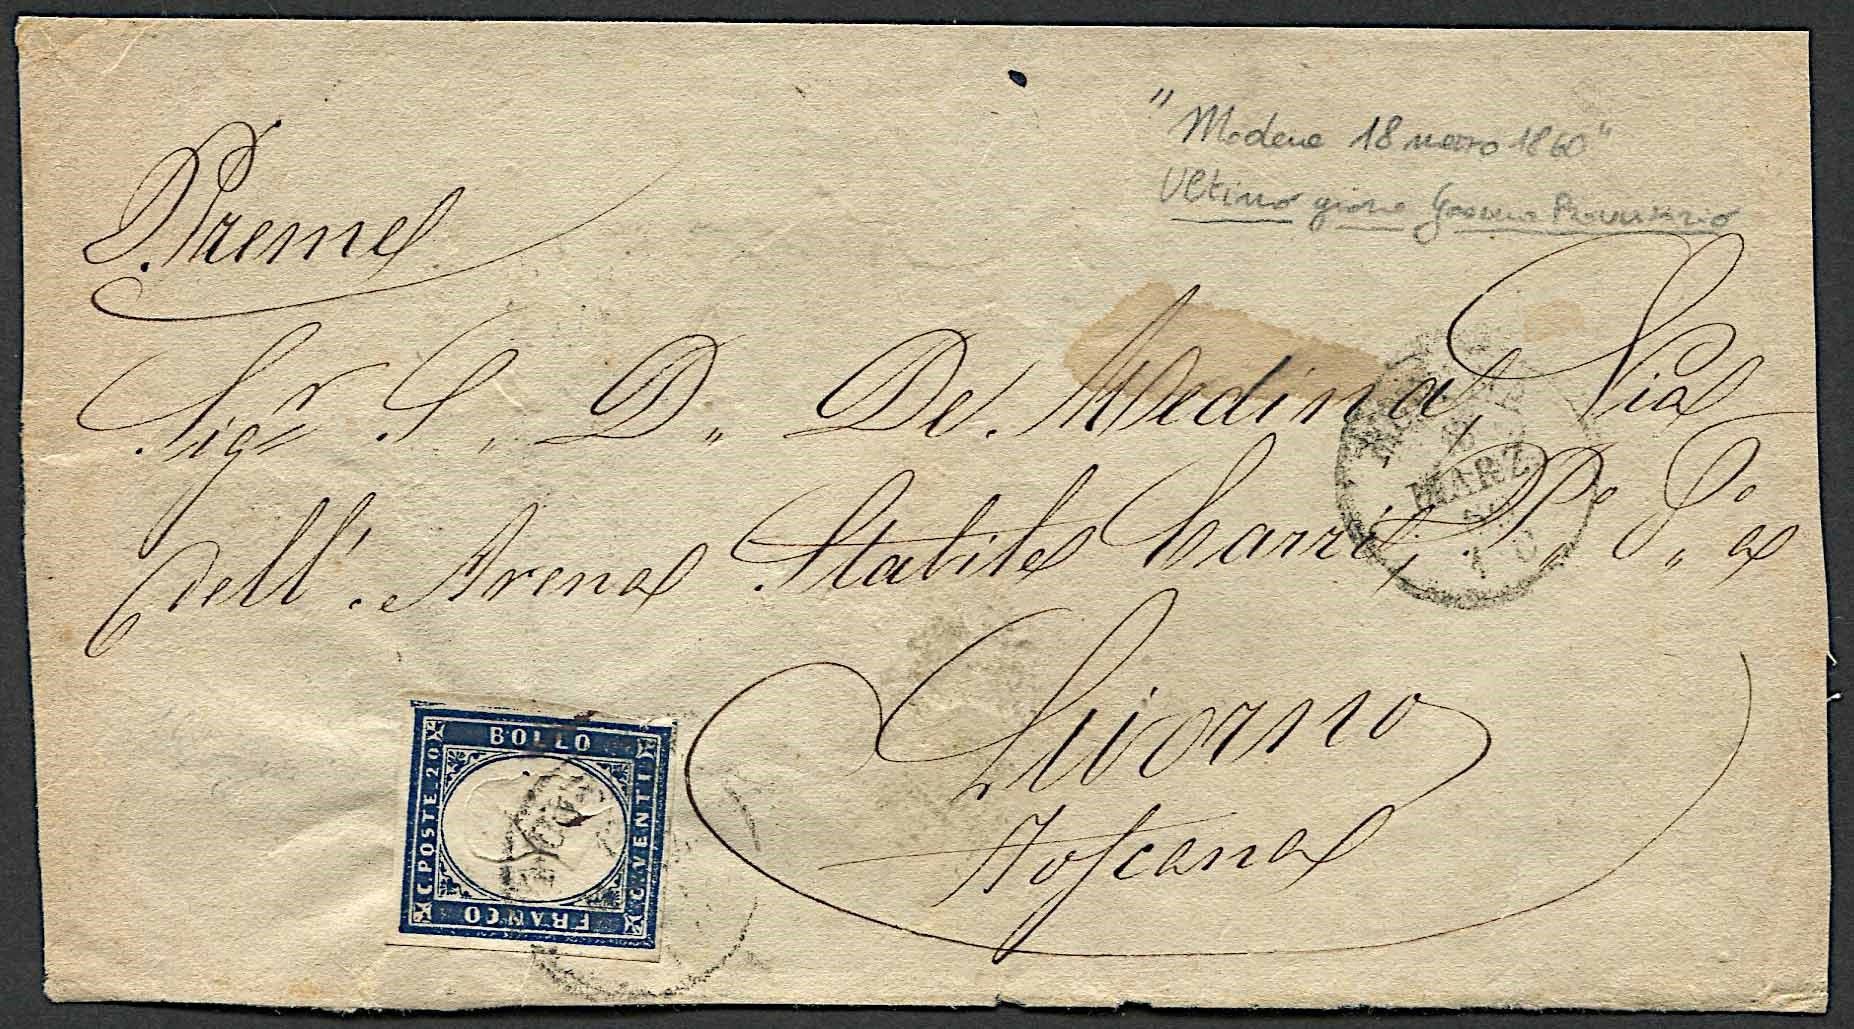 "Modena 18 marzo 1860"
Ultimo giorno Governo Provvisorio
Preme
Sig.r S. D. De Medina, Via
dell'Arena Stabile Carri, P. P. a
Livorno
Toscana
MODENA
18
MARZ.
60
BOLLO
C. POSTE. 20
C. VENTI
FRANCO